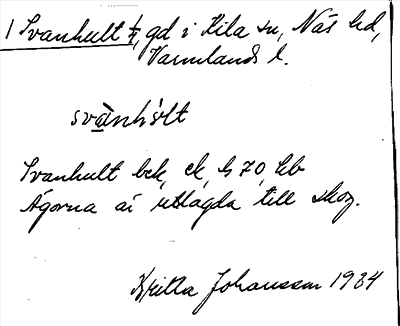 1 Svanhult 1/4, gd i Kila sn, Näs hd,
Värmlands l.
svànhùlt
Svanhult bek, ek, h 70, kb
Ägorna äi utlagda till skog.
Britta Johansson 1934